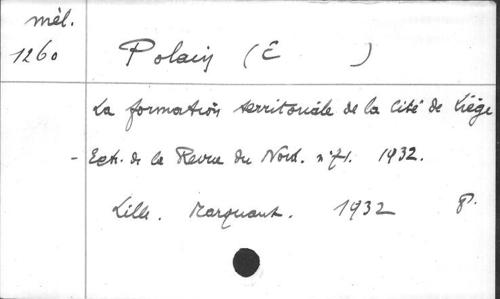 mél.
1260
Polain (E )
La formation territoriale de la Cité de Liége
- Extr. de la Revue du Nord. n° 71. 1932.
Lille. Marquant. 1932 8°.